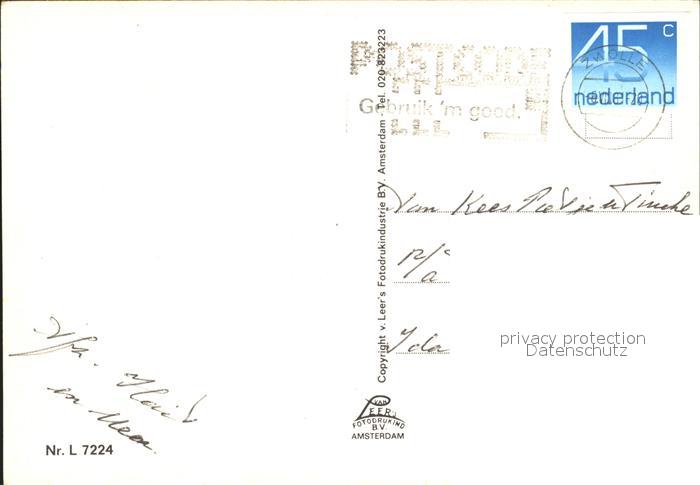 45 c
nederland
ZWOLLE
POSTCODE
Gebruik 'm goed.
Copyright v. Leer's Fotodrukindustrie B.V. Amsterdam - Tel. 020-823223
Van Kees
p/a
Ida
privacy protection
Datenschutz
en Meer.
VAN
LEER'S
FOTODRUKIND
B.V.
AMSTERDAM
Nr. L 7224